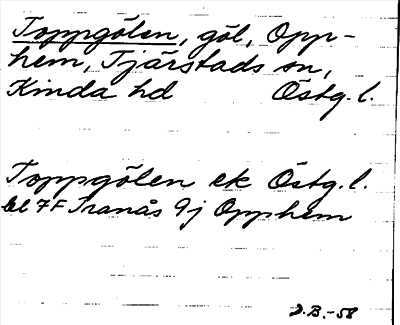 Toppgölen, göl, Opp-
hem, Tjärstads sn,
Kinda hd Östg. l.
Toppgölen ek Östg. l.
bl 7F Tranås 9j Opphem
J.B.-58